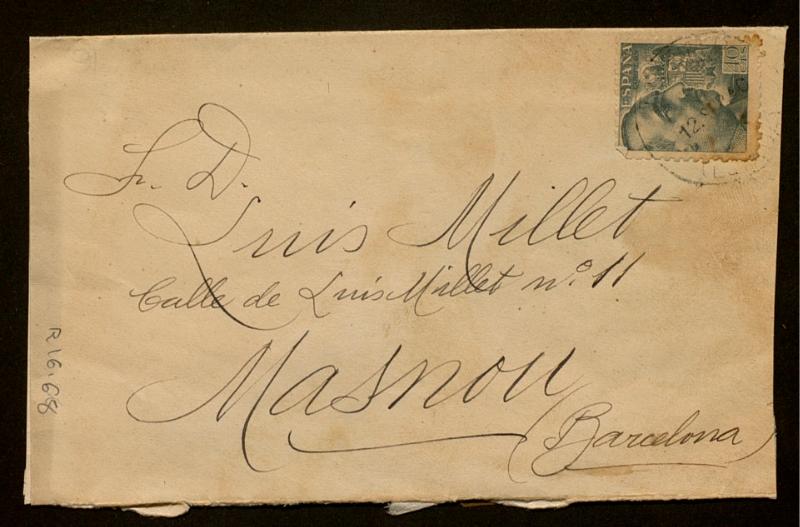 ESPAÑA
40 cts
12.
Sr. D.
Luis Millet
Calle de Luis Millet nº 11
Masnou
(Barcelona)
R 16.68